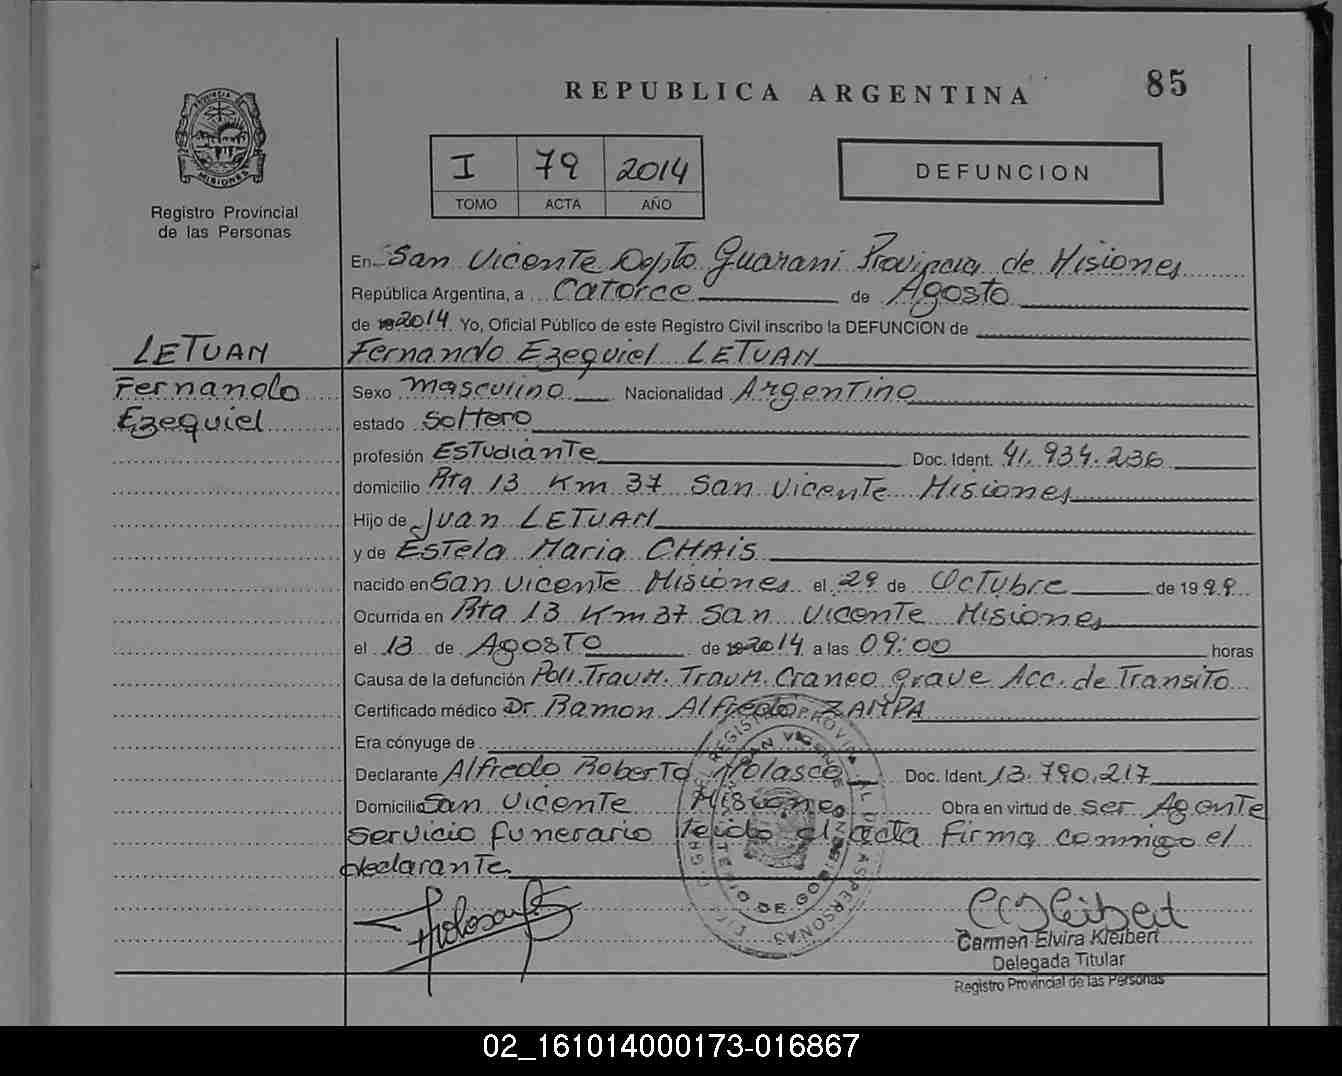 REPUBLICA ARGENTINA
85
PROVINCIA DE
MISIONES
Registro Provincial
de las Personas
I 79 2014
TOMO ACTA AÑO
DEFUNCION
En San Vicente Depto Guarani Provincia de Misiones
República Argentina, a Catorce de Agosto
de 2014 Yo, Oficial Público de este Registro Civil inscribo la DEFUNCION de
LETUAN
Fernando Ezequiel LETUAN
Fernando
Ezequiel
Sexo Masculino Nacionalidad Argentino
estado Soltero
profesión Estudiante Doc. Ident. 41.934.236
domicilio Rta 13 Km 37 San Vicente Misiones
Hijo de Juan LETUAN
y de Estela Maria CHAIS
nacido en San Vicente Misiones el 29 de Octubre de 1999
Ocurrida en Rta 13 Km 37 San Vicente Misiones
el 13 de Agosto de 2014 a las 09:00 horas
Causa de la defunción Poli.Traum. Traum. Craneo grave Acc. de Transito
Certificado médico Dr Ramon Alfredo ZAMPA
Era cónyuge de
Declarante Alfredo Roberto Nolasco Doc. Ident. 13.790.217
Domicilio San Vicente Misiones Obra en virtud de ser Agente
Servicio funerario leido el acta firma conmigo el
declarante
Carmen Elvira Kleibert
Delegada Titular
Registro Provincial de las Personas
02_161014000173-016867